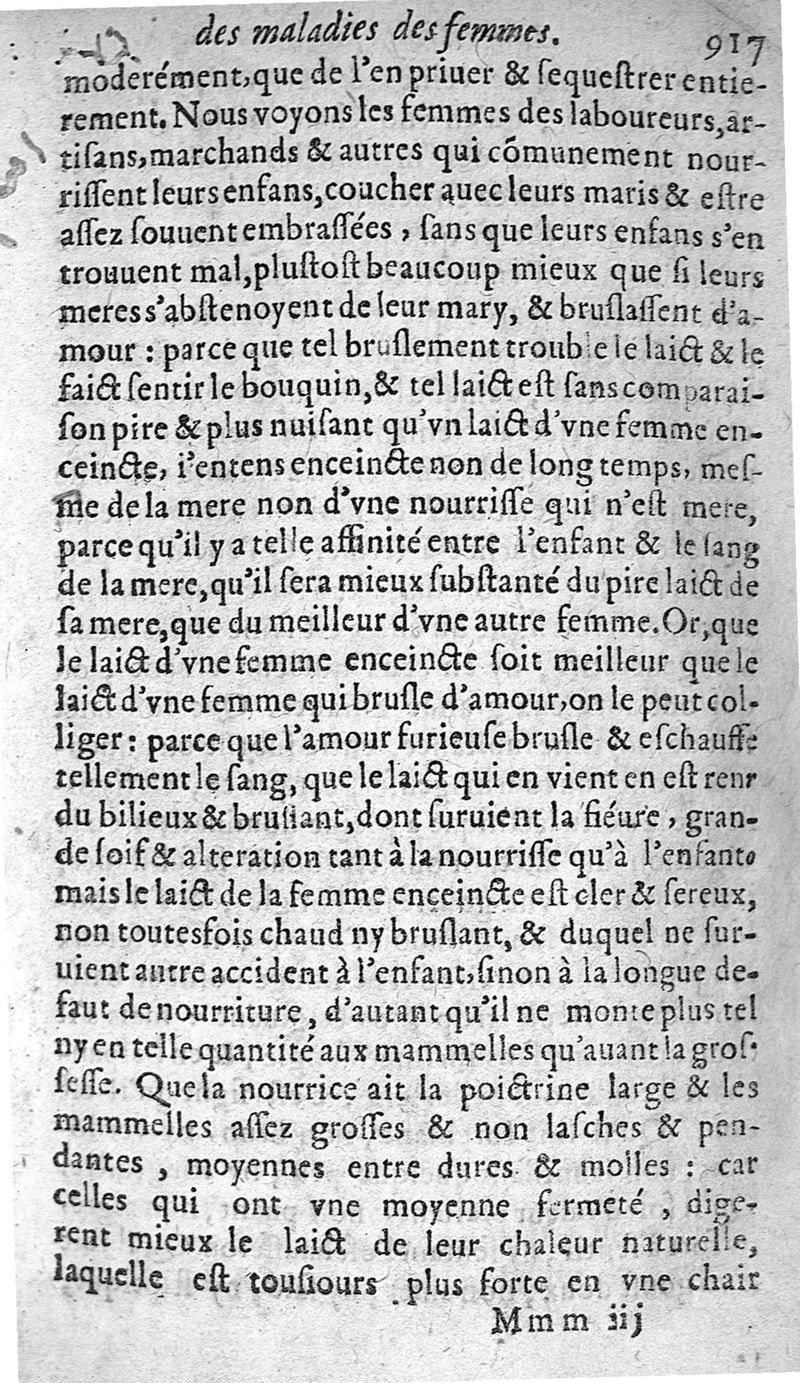 des maladies des femmes. 917
moderément, que de l'en priuer & ſequeſtrer entie-
rement. Nous voyons les femmes des laboureurs, ar-
tiſans, marchands & autres qui cõmunement nour-
riſſent leurs enfans, coucher auec leurs maris & eſtre
aſſez ſouuent embraſſées, ſans que leurs enfans s'en
trouuent mal, pluſtoſt beaucoup mieux que ſi leurs
meres s'abſtenoyent de leur mary, & bruſlaſſent d'a-
mour : parce que tel bruſlement trouble le laict & le
faict ſentir le bouquin, & tel laict eſt ſans comparai-
ſon pire & plus nuiſant qu'vn laict d'vne femme en-
ceincte, i'entens enceincte non de long temps, meſ-
me de la mere non d'vne nourriſſe qui n'eſt mere,
parce qu'il y a telle affinité entre l'enfant & le ſang
de la mere, qu'il ſera mieux ſubſtanté du pire laict de
ſa mere, que du meilleur d'vne autre femme. Or, que
le laict d'vne femme enceincte ſoit meilleur que le
laict d'vne femme qui bruſle d'amour, on le peut col-
liger : parce que l'amour furieuſe bruſle & eſchauffe
tellement le ſang, que le laict qui en vient en eſt ren
du bilieux & bruſlant, dont ſuruient la fiéure, gran-
de ſoif & alteration tant à la nourriſſe qu'à l'enfant.
mais le laict de la femme enceincte eſt cler & ſereux,
non toutesfois chaud ny bruſlant, & duquel ne ſur-
uient autre accident à l'enfant, ſinon à la longue de-
faut de nourriture, d'autant qu'il ne monte plus tel
ny en telle quantité aux mammelles qu'auant la groſ-
ſeſſe. Que la nourrice ait la poictrine large & les
mammelles aſſez groſſes & non laſches & pen-
dantes, moyennes entre dures & molles : car
celles qui ont vne moyenne fermeté, dige-
rent mieux le laict de leur chaleur naturelle,
laquelle eſt touſiours plus forte en vne chair
Mmm iij